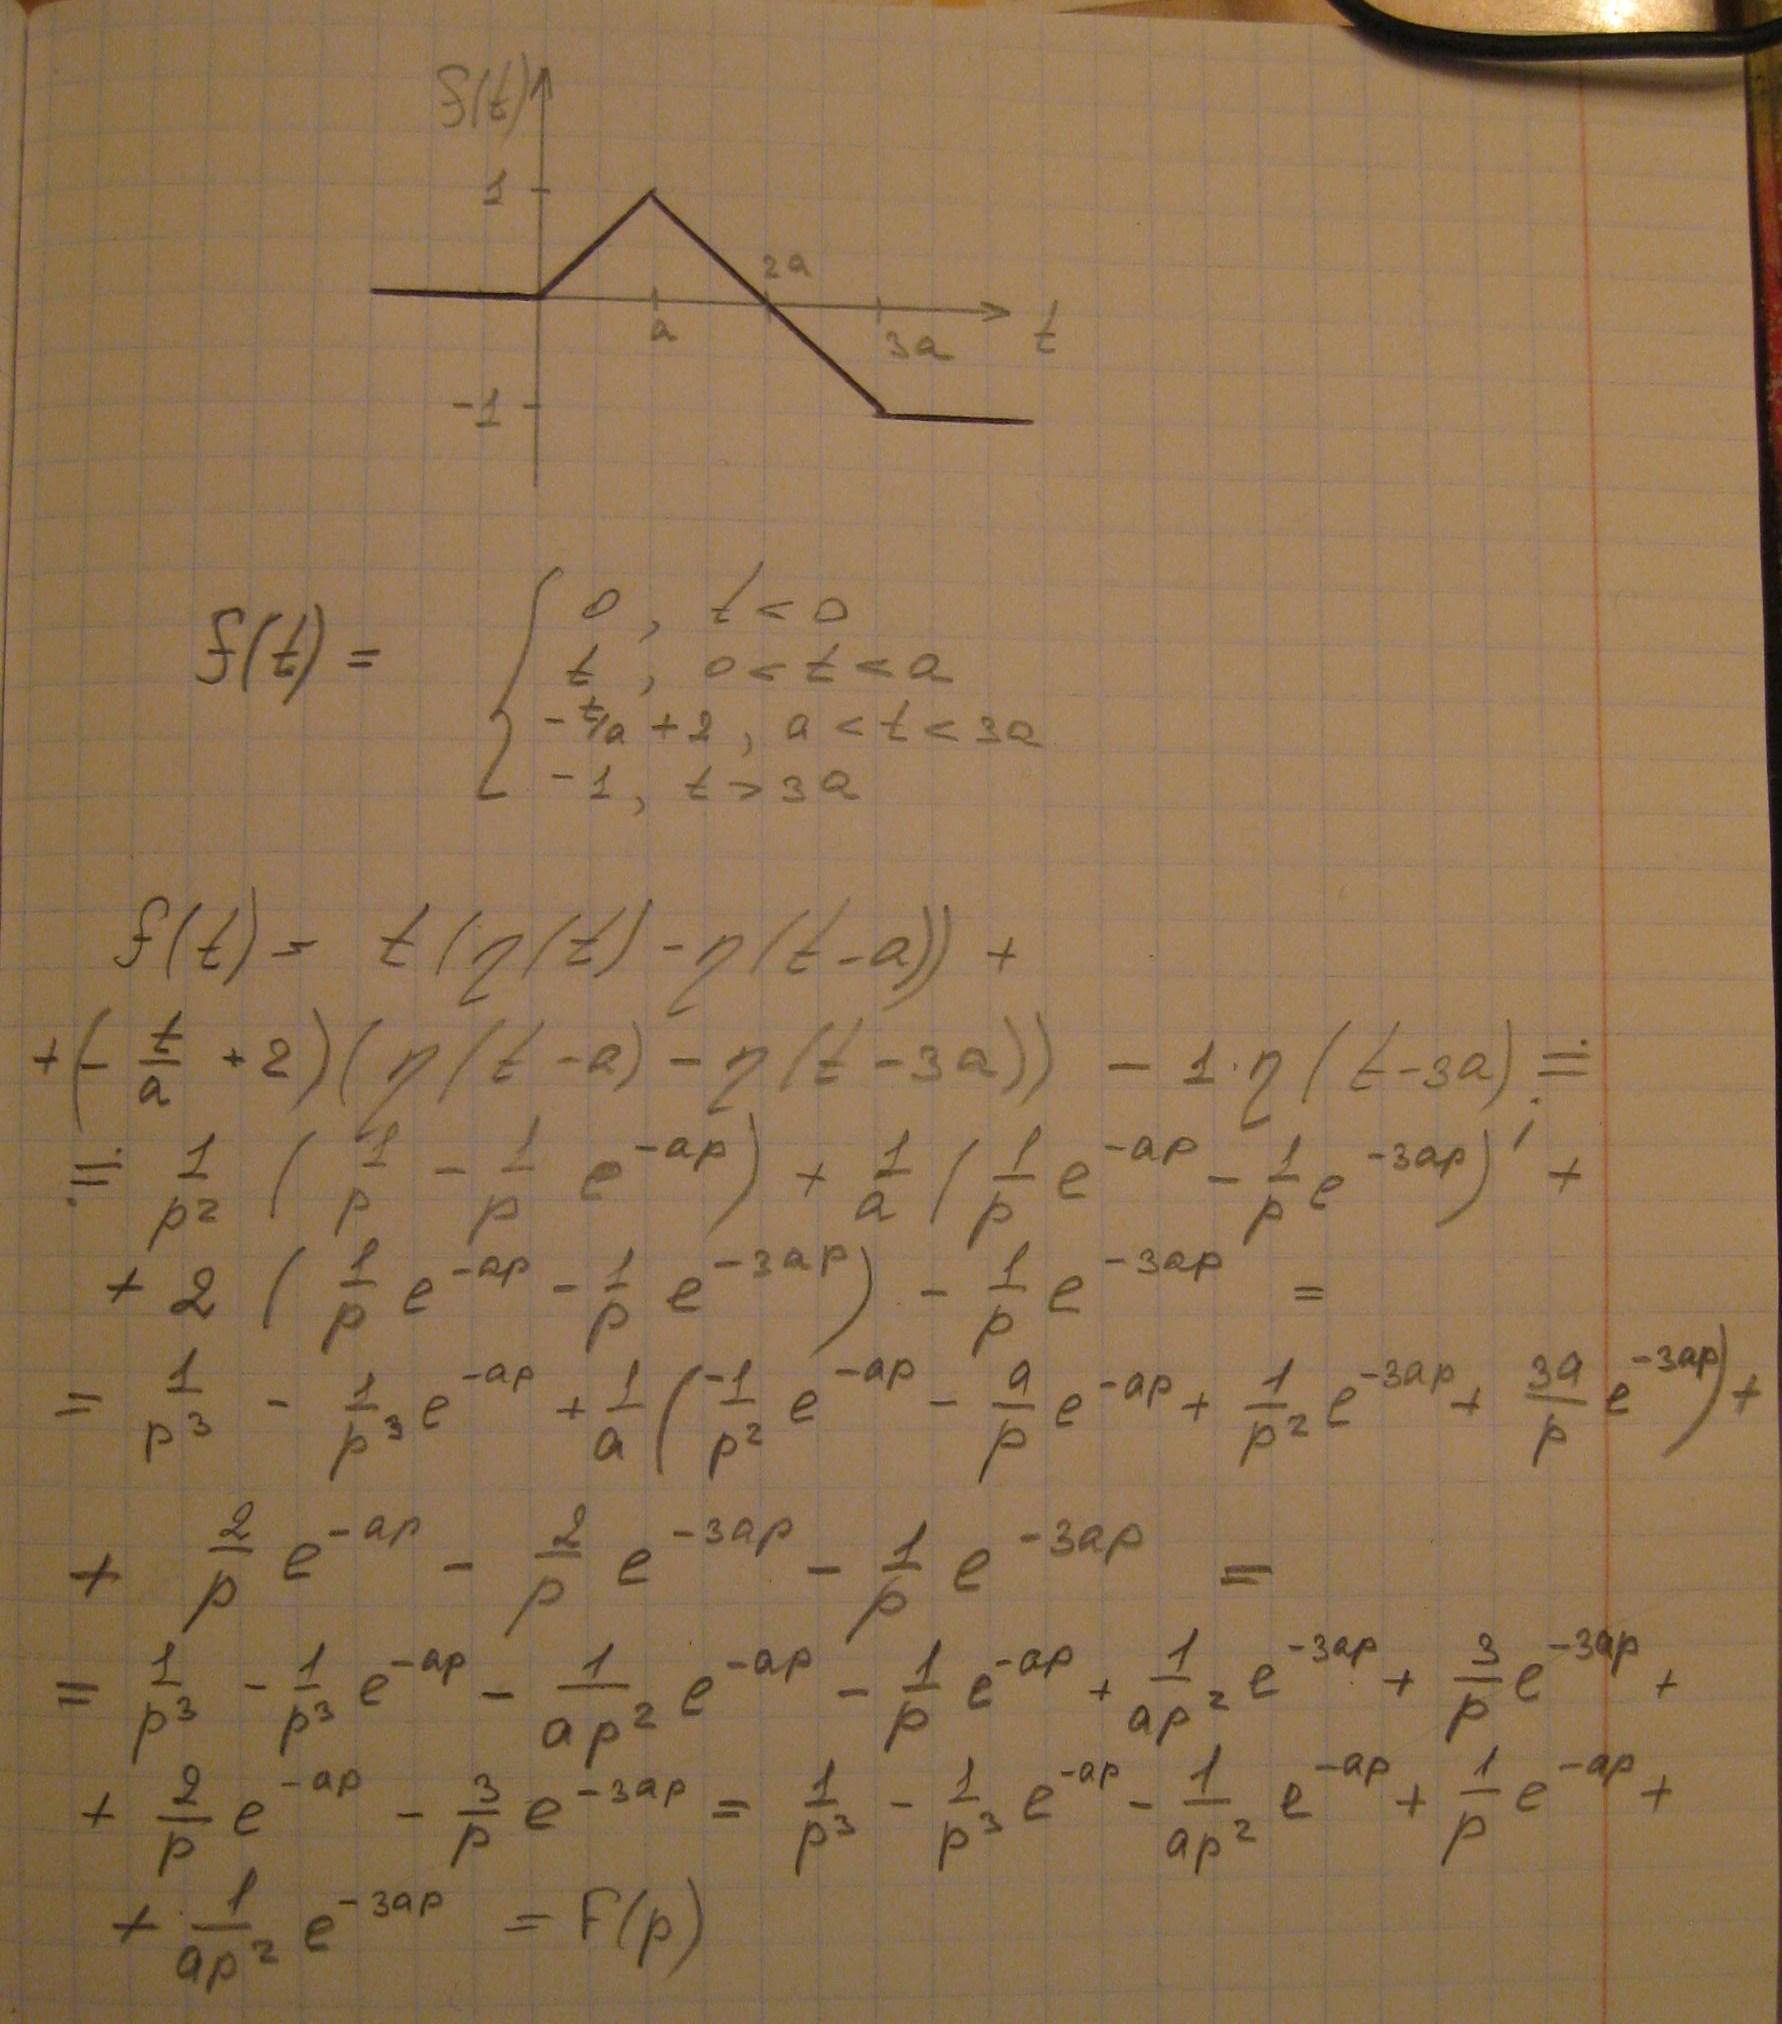 f(t)
1
2a
a
3a
t
-1
f(t) = { 0 , t < 0
t , 0 < t < a
-t/a + 2 , a < t < 3a
-1 , t > 3a
f(t) = t (η(t) - η(t-a)) +
+ (- t/a + 2) (η(t-a) - η(t-3a)) - 1·η(t-3a) ≓
≓ 1/p² (1/p - 1/p e^{-ap}) + 1/a (1/p e^{-ap} - 1/p e^{-3ap})' +
+ 2 (1/p e^{-ap} - 1/p e^{-3ap}) - 1/p e^{-3ap} =
= 1/p³ - 1/p³ e^{-ap} + 1/a (-1/p² e^{-ap} - a/p e^{-ap} + 1/p² e^{-3ap} + 3a/p e^{-3ap}) +
+ 2/p e^{-ap} - 2/p e^{-3ap} - 1/p e^{-3ap} =
= 1/p³ - 1/p³ e^{-ap} - 1/ap² e^{-ap} - 1/p e^{-ap} + 1/ap² e^{-3ap} + 3/p e^{-3ap} +
+ 2/p e^{-ap} - 3/p e^{-3ap} = 1/p³ - 1/p³ e^{-ap} - 1/ap² e^{-ap} + 1/p e^{-ap} +
+ 1/ap² e^{-3ap} = F(p)